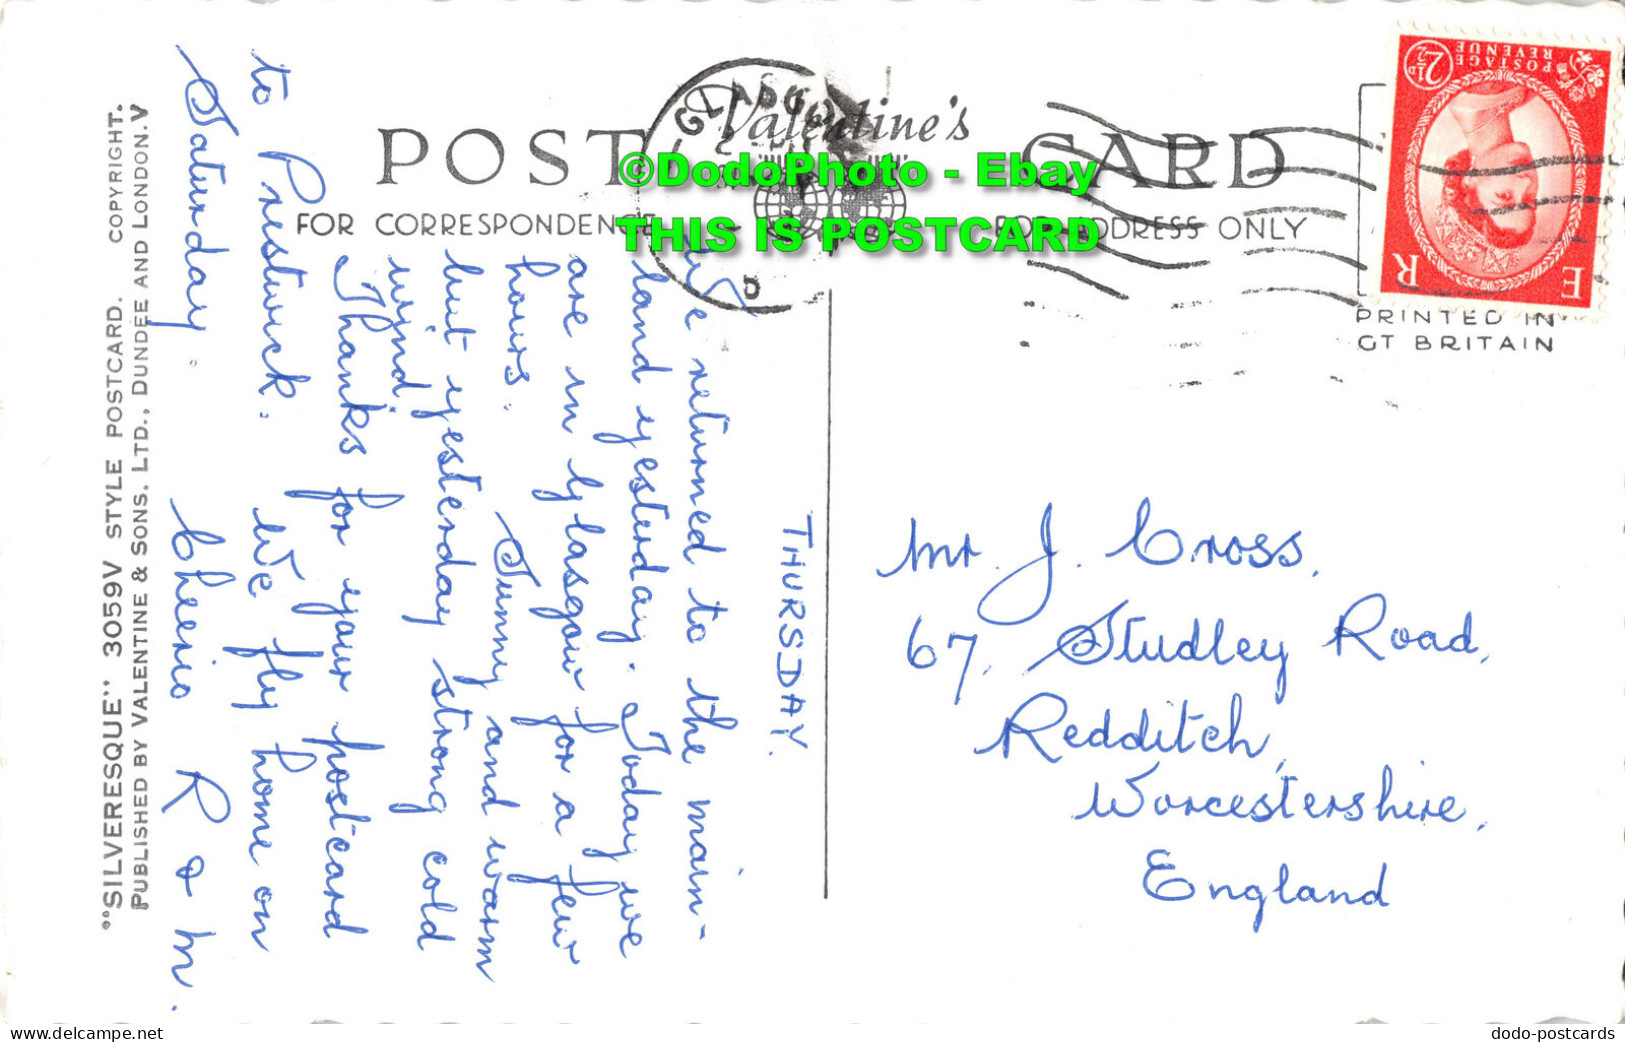 POST CARD
Valentine's
FOR CORRESPONDENCE
FOR ADDRESS ONLY
GLASGOW
D
©DodoPhoto - Ebay
THIS IS POSTCARD
POSTAGE
REVENUE
2½D
E R
PRINTED IN
GT BRITAIN
THURSDAY.
We returned to the main-
land yesterday. Today we
are in Glasgow for a few
hours. Sunny and warm
but yesterday strong cold
wind.
Thanks for your postcard
We fly home on
to Prestwick.
Saturday. Cheerio R & M.
Mr. J. Cross,
67, Studley Road,
Redditch,
Worcestershire,
England
"SILVERESQUE" 3059V STYLE POSTCARD. COPYRIGHT.
PUBLISHED BY VALENTINE & SONS. LTD., DUNDEE AND LONDON.V
www.delcampe.net
dodo-postcards